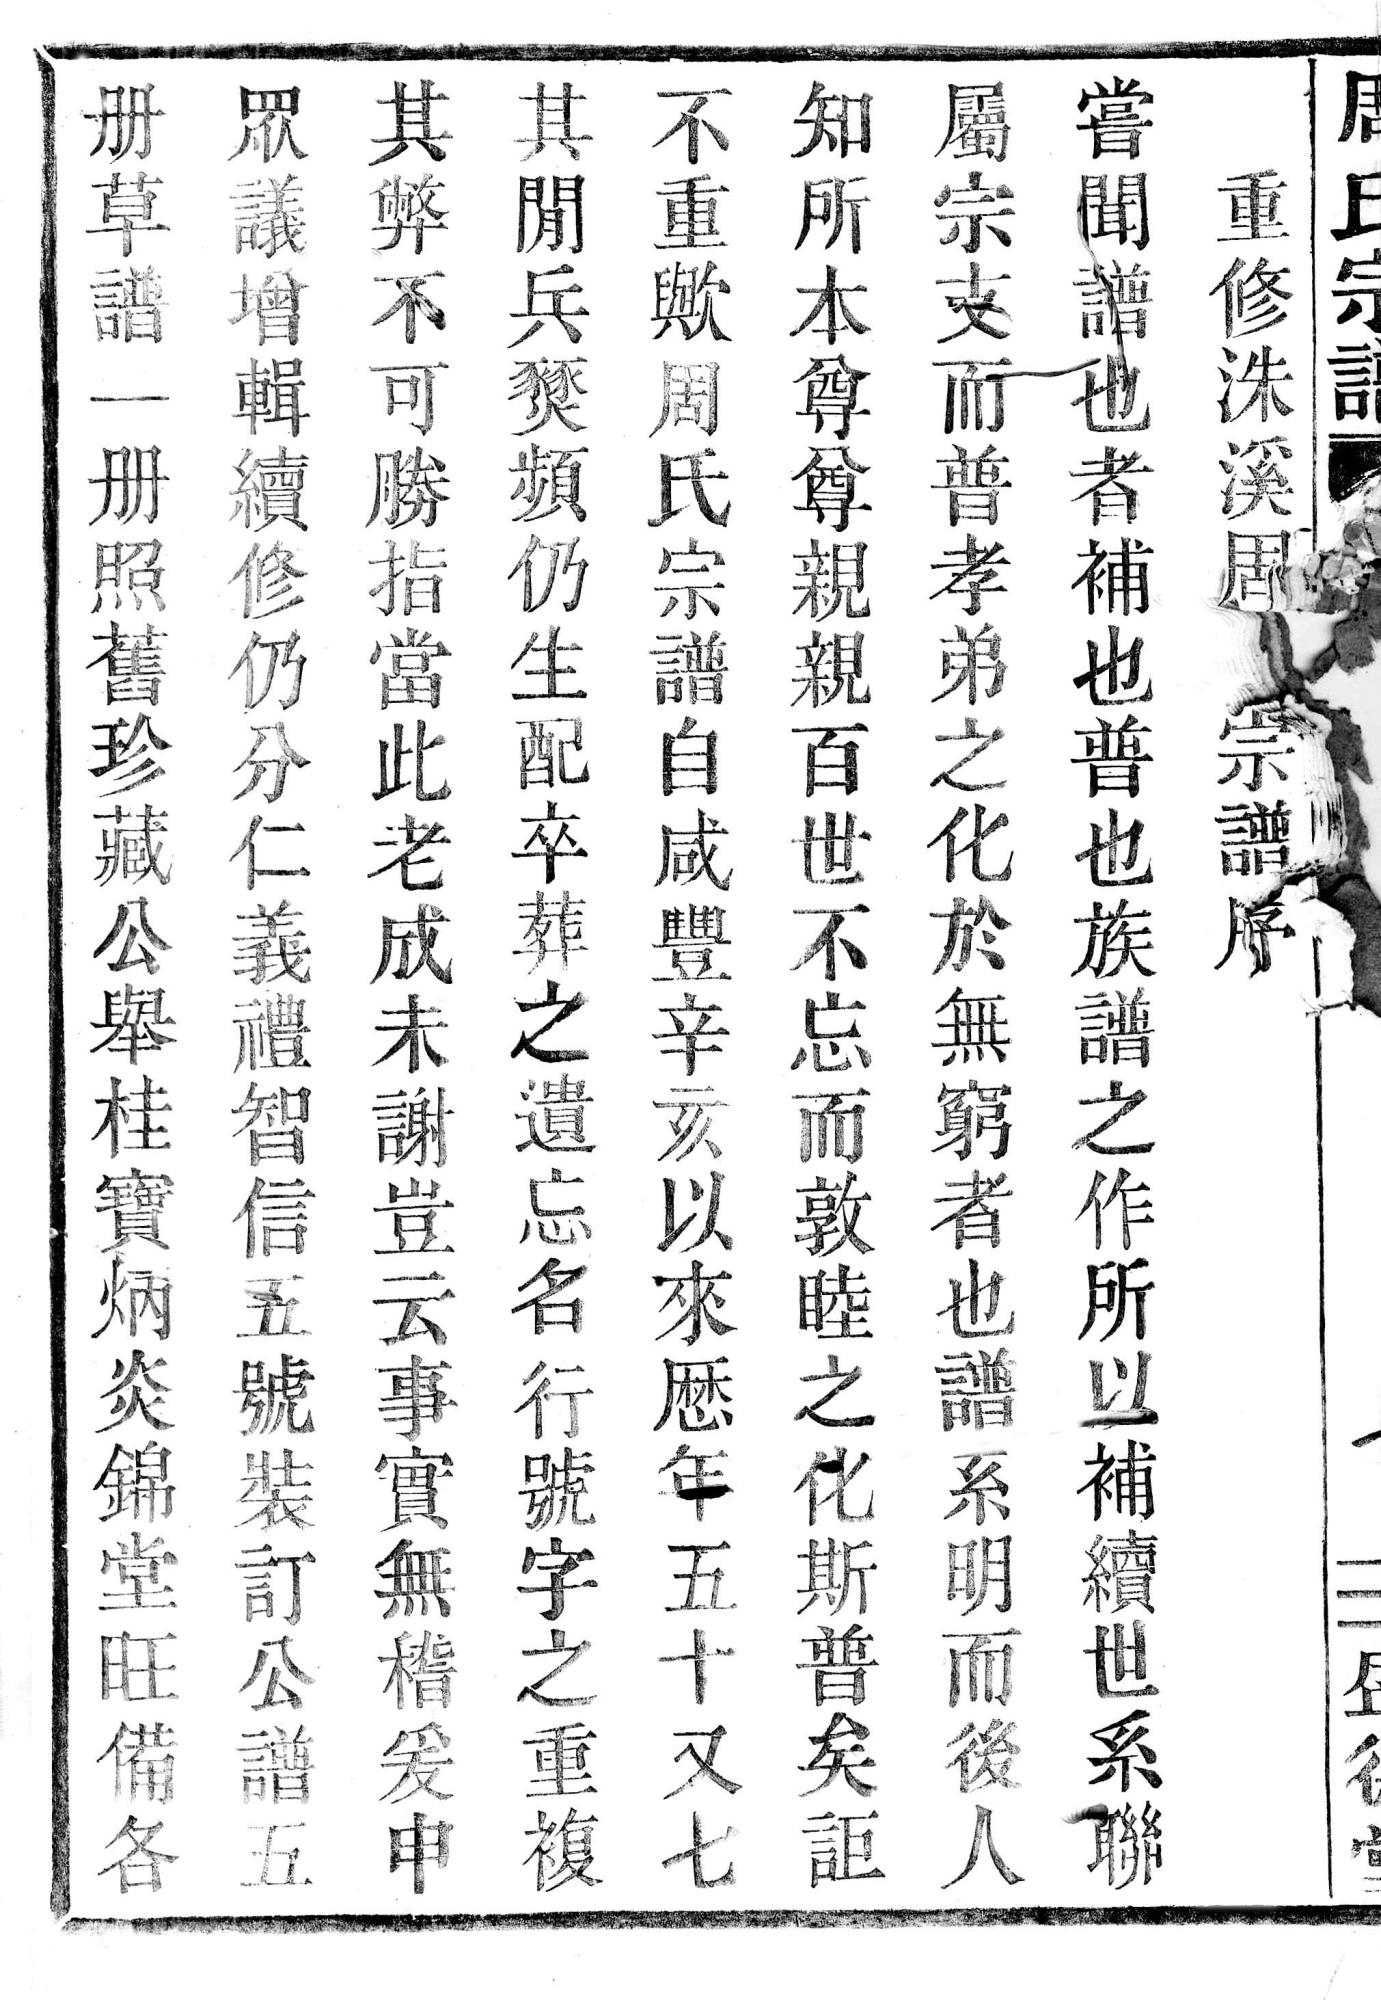 周氏宗譜
重修洙溪周氏宗譜序
嘗聞譜也者補也普也族譜之作所以補續世系聯
屬宗支而普孝弟之化於無窮者也譜系明而後人
知所本尊尊親親百世不忘而敦睦之化斯普矣詎
不重歟周氏宗譜自咸豐辛亥以來歷年五十又七
其閒兵燹頻仍生配卒葬之遺忘名行號字之重複
其弊不可勝指當此老成未謝豈云事實無稽爰申
眾議增輯續修仍分仁義禮智信五號裝訂公譜五
册草譜一册照舊珍藏公舉桂寶炳炎錦堂旺備各